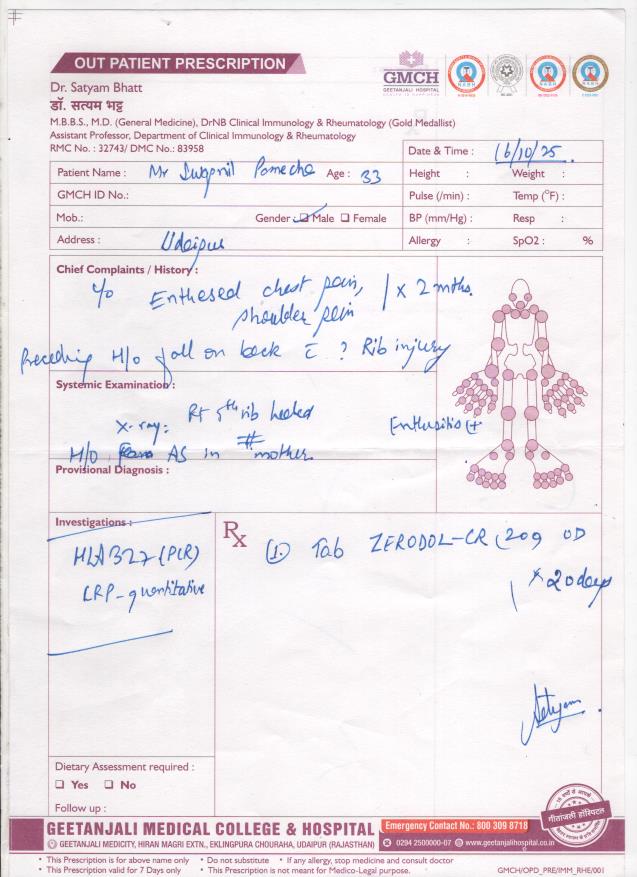 OUT PATIENT PRESCRIPTION
GMCH
GEETANJALI HOSPITAL
Dr. Satyam Bhatt
डॉ. सत्यम भट्ट
M.B.B.S., M.D. (General Medicine), DrNB Clinical Immunology & Rheumatology (Gold Medallist)
Assistant Professor, Department of Clinical Immunology & Rheumatology
RMC No. : 32743/ DMC No. : 83958
Date & Time : 16/10/25
Patient Name : Mr Swapnil Age : 33
Height : Weight :
GMCH ID No.:
Pulse (/min) : Temp (°F) :
Mob.: Gender : ☑ Male ☐ Female
BP (mm/Hg) : Resp :
Address : Udaipur
Allergy : SpO2 : %
Chief Complaints / History :
c/o Entheseal chest pain, shoulder pain x 2 mths.
Preceding H/o fall on back c̄ ? Rib injury
Systemic Examination :
X-ray: Rt 5th rib healed #
Enthesitis +
H/o AS in mother
Provisional Diagnosis :
Investigations :
HLAB27 (PCR)
CRP-quantitative
Rx
① Tab ZERODOL-CR OD
x 20 days
Satyam
Dietary Assessment required :
☐ Yes ☐ No
Follow up :
गीतांजली हॉस्पिटल
GEETANJALI MEDICAL COLLEGE & HOSPITAL
Emergency Contact No.: 800 309 8718
GEETANJALI MEDICITY, HIRAN MAGRI EXTN., EKLINGPURA CHOURAHA, UDAIPUR (RAJASTHAN)
0294 2500000-07 www.geetanjalihospital.co.in
• This Prescription is for above name only • Do not substitute • If any allergy, stop medicine and consult doctor
• This Prescription valid for 7 Days only • This Prescription is not meant for Medico-Legal purpose.
GMCH/OPD_PRE/IMM_RHE/001